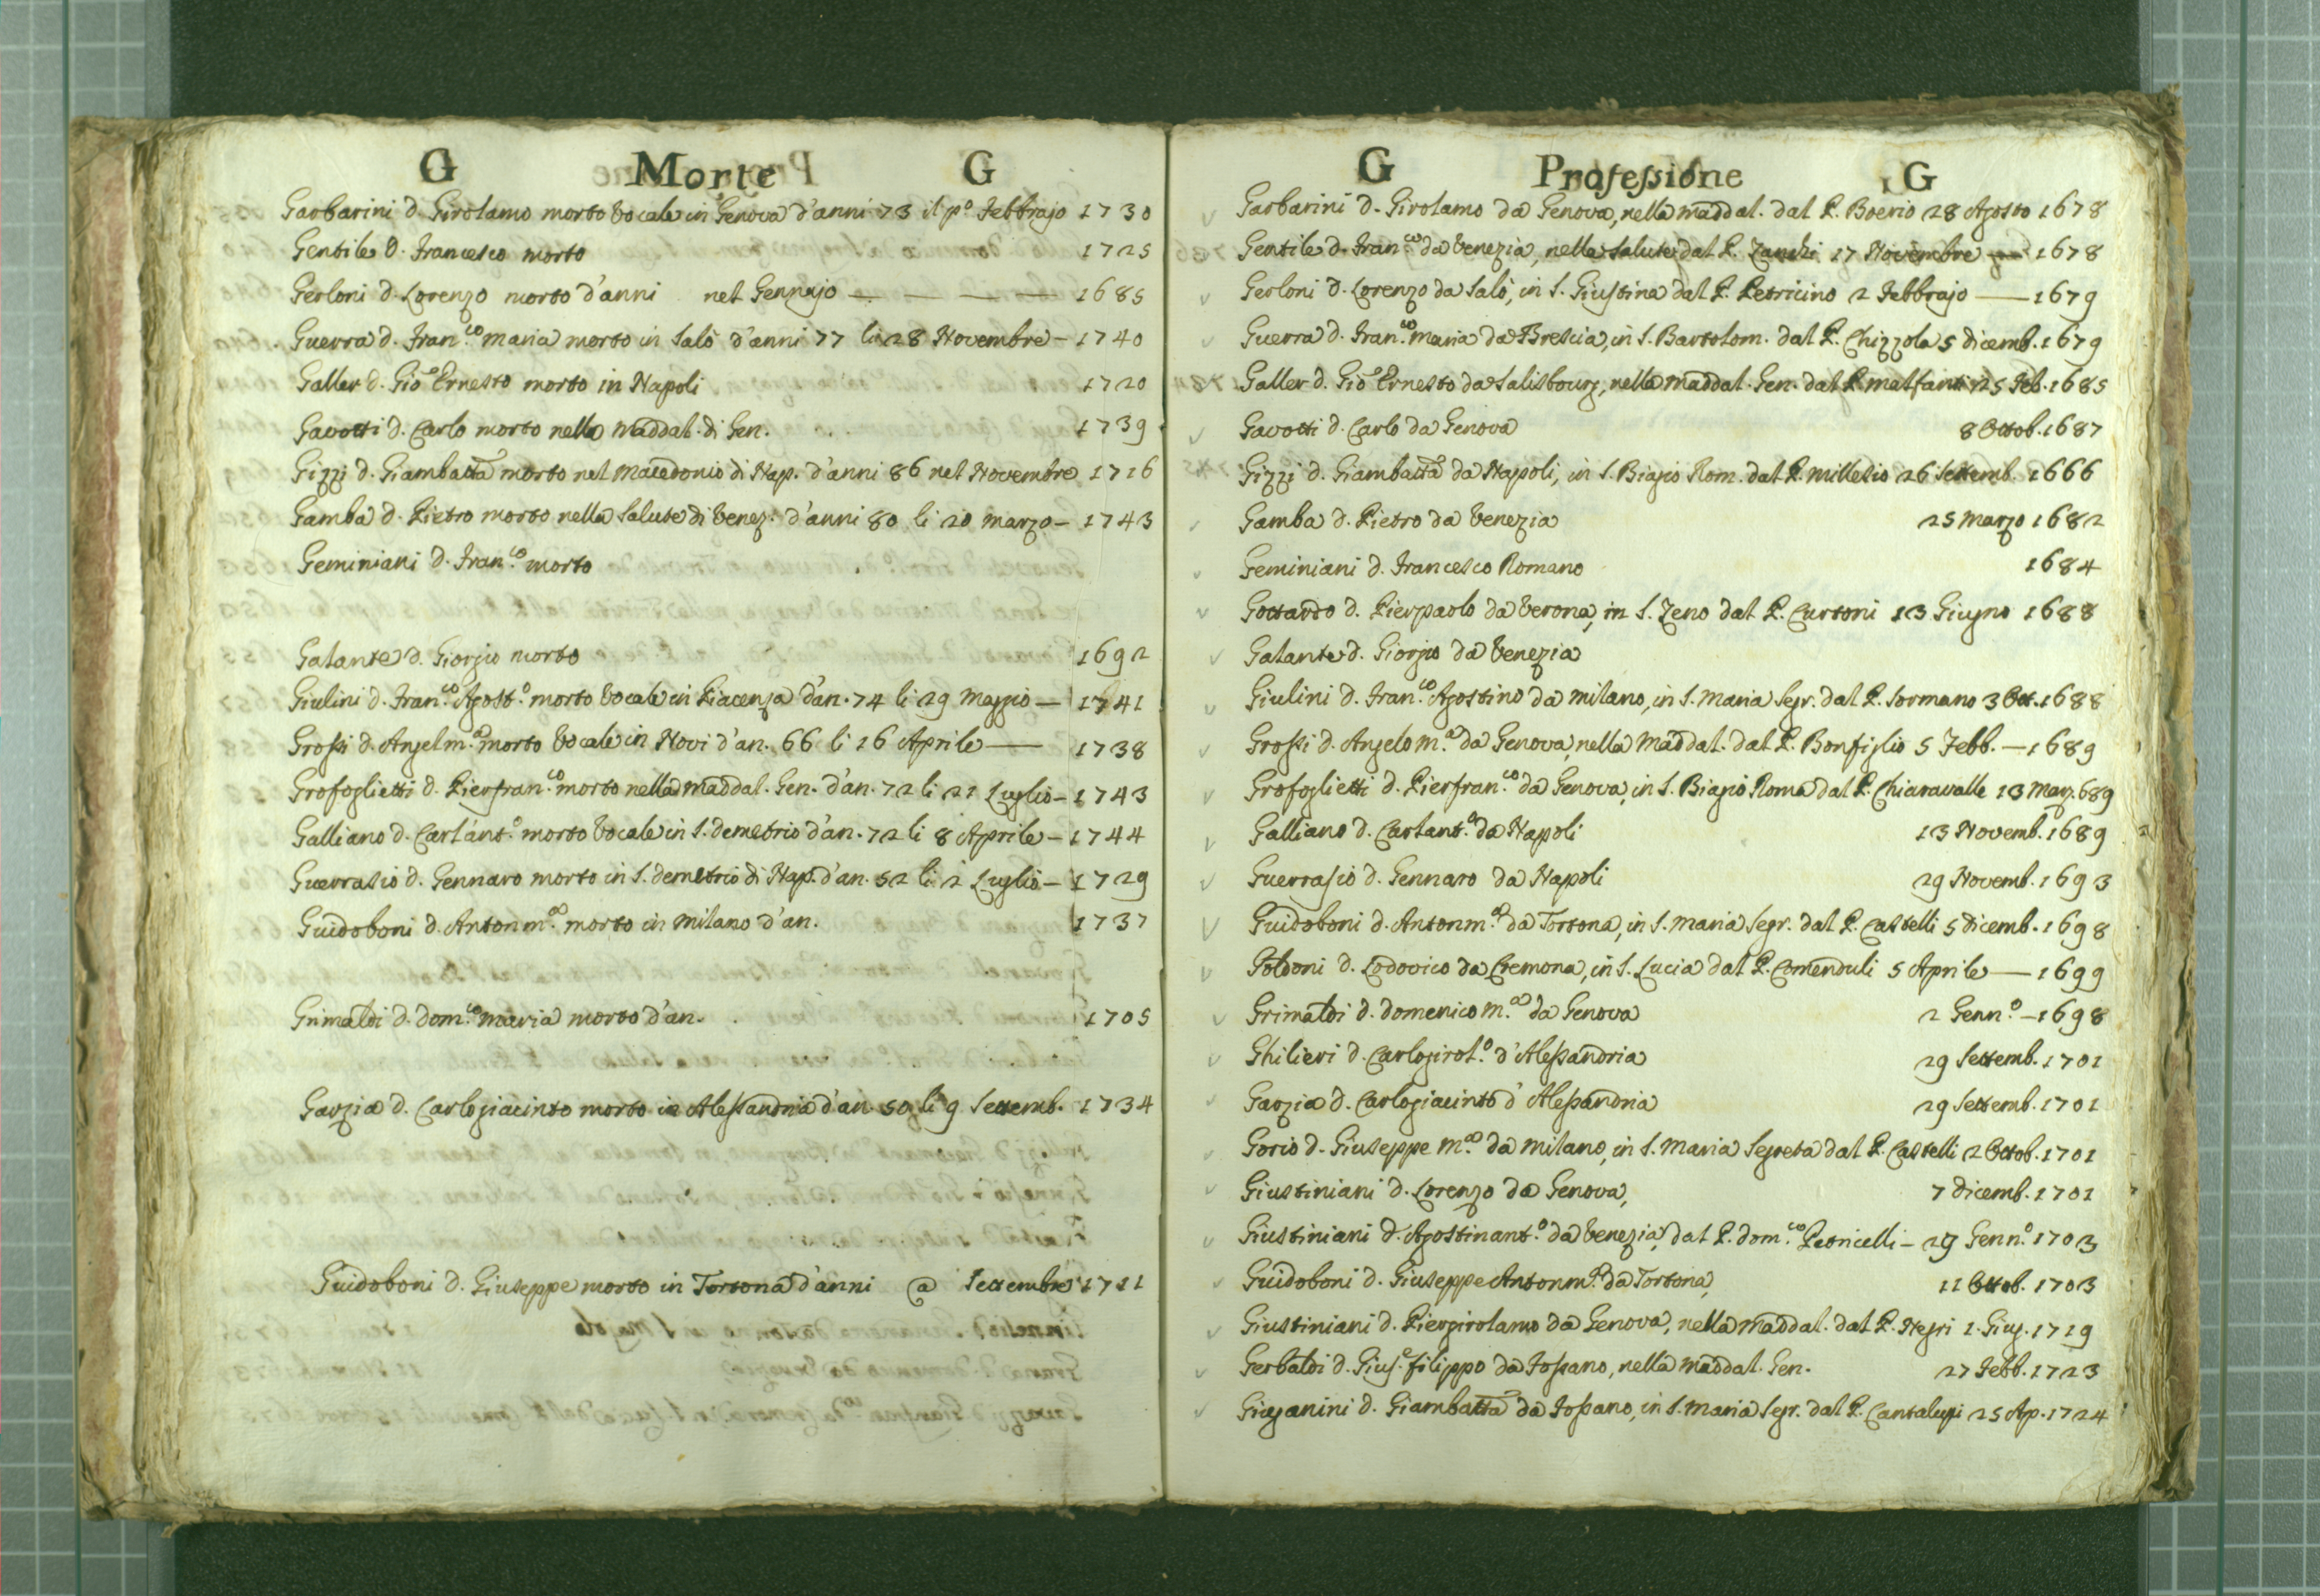 G Morte G
Garbarini d. Girolamo morto vocale in Genova d'anni 73 il p.º Febbrajo 1730
Gentile d. Francesco morto 1725
Gerloni d. Lorenzo morto d'anni nel Gennajo — — — — 1685
Guerra d. Fran.co maria morto in Salò d'anni 77 li 28 Novembre — 1740
Galler d. Gio Ernesto morto in Napoli 1720
Gavotti d. Carlo morto nella maddal. di Gen. 1739
Gizzi d. Giambatta morto nel macedonio di Nap. d'anni 86 nel Novembre 1716
Gamba d. Pietro morto nella Salute di Venez. d'anni 80 li 20 marzo — 1743
Geminiani d. Fran.co morto
Galante d. Giorgio morto 1692
Giulini d. Fran.co Agost.º morto vocale in Piacenza d'an. 74 li 29 Maggio — 1741
Grossi d. Angelm.a morto vocale in Novi d'an. 66 li 16 Aprile — 1738
Grofoglietti d. Pierfran.co morto nella maddal. Gen. d'an. 72 li 21 Luglio — 1743
Galliano d. Carlant.º morto vocale in S. demetrio d'an. 72 li 8 Aprile — 1744
Guerrasio d. Gennaro morto in S. demetrio di Nap. d'an. 52 li 2 Luglio — 1729
Guidoboni d. Antonm.a morto in milano d'an. 1737
Grimaldi d. dom.co maria morto d'an. 1705
Garzia d. Carlogiacinto morto in Alessandria d'an. 50 li 9 Settemb. 1734
Guidoboni d. Giuseppe morto in Tortona d'anni @ Settembre 1711
G Professione G
Garbarini d. Girolamo da Genova, nella maddal. dal P. Boerio 28 Agosto 1678
Gentile d. Fran.co da Venezia, nella Salute dal P. Zanchi 17 Novembre — 1678
Gerloni d. Lorenzo da Salò, in S. Giustina dal P. Petricino 2 Febbrajo — 1679
Guerra d. Fran.co maria da Brescia, in S. Bartolom. dal P. Chizzola 5 dicemb. 1679
Galler d. Gio Ernesto da Salisbourg, nella maddal. Gen. dal P. malfanti 25 Feb. 1685
Gavotti d. Carlo da Genova 8 Ottob. 1687
Gizzi d. Giambatta da Napoli, in S. Biagio Rom. dal P. millesio 26 Settemb. 1666
Gamba d. Pietro da Venezia 25 marzo 1682
Geminiani d. Francesco Romano 1684
Gottardo d. Pierpaolo da Verona, in S. Zeno dal P. Curtoni 13 Giugno 1688
Galante d. Giorgio da Venezia
Giulini d. Fran.co Agostino da milano, in S. maria Segr. dal P. Sormano 3 Ott. 1688
Grossi d. Angelo m.a da Genova, nella Maddal. dal P. Bonfiglio 5 Febb. — 1689
Grofoglietti d. Pierfran.co da Genova, in S. Biagio Roma dal P. Chiaravalle 13 Marz. 689
Galliano d. Carlant.º da Napoli 13 Novemb. 1689
Guerrasio d. Gennaro da Napoli 29 Novemb. 1693
Guidoboni d. Antonm.a da Tortona, in S. maria Segr. dal P. Castelli 5 dicemb. 1698
Goldoni d. Lodovico da Cremona, in S. Lucia dal P. Comenduli 5 Aprile — 1699
Grimaldi d. domenico m.a da Genova 2 Genn.º — 1698
Ghilieri d. Carlogirol.º d'Alessandria 29 Settemb. 1701
Garzia d. Carlogiacinto d'Alessandria 29 Settemb. 1701
Gorio d. Giuseppe m.a da milano, in S. maria Segreta dal P. Castelli 2 Ottob. 1701
Giustiniani d. Lorenzo da Genova, 7 dicemb. 1701
Giustiniani d. Agostinant.º da Venezia, dal P. dom.co Petricelli — 29 Genn.º 1703
Guidoboni d. Giuseppe Antonm.a da Tortona, 11 Ottob. 1703
Giustiniani d. Piergirolamo da Genova, nella maddal. dal P. Negri 1. Giug. 1719
Gerbaldi d. Gius.e filippo da Fossano, nella maddal. Gen. 27 Febb. 1723
Giuganini d. Giambatta da Fossano, in S. maria Segr. dal P. Cantalupi 25 Ap. 1724